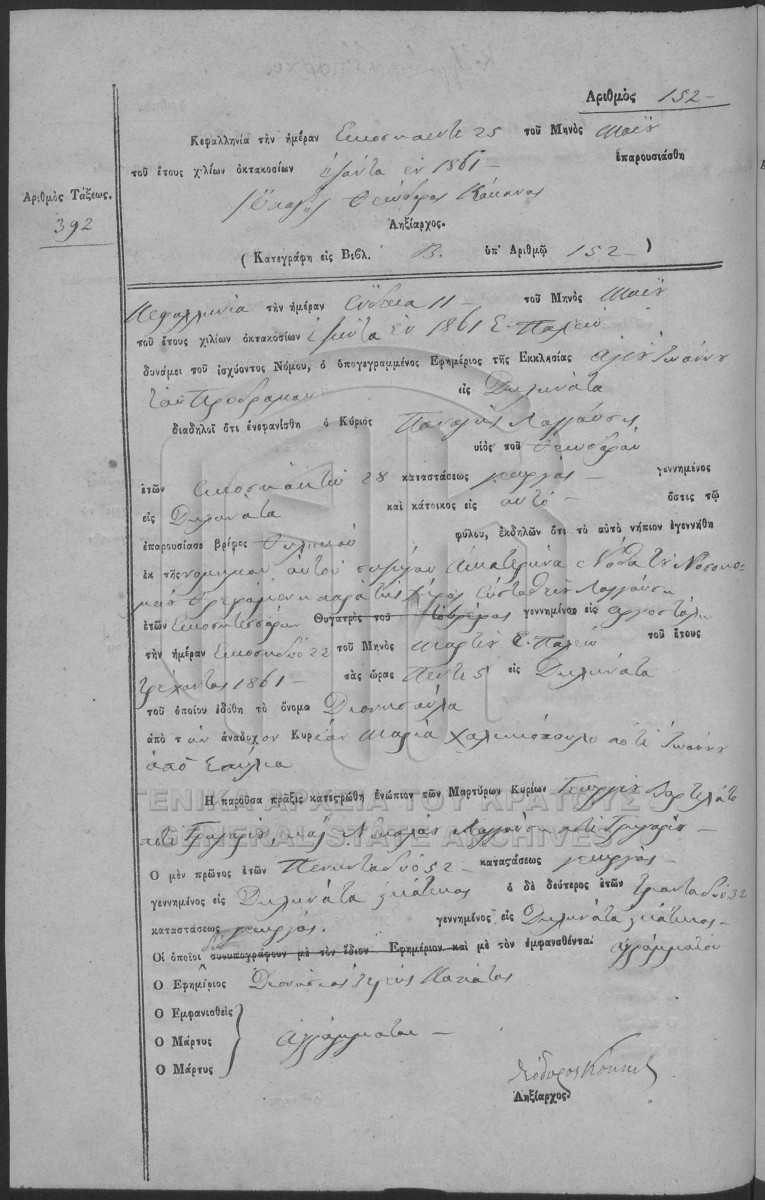 Αριθμὸς 152 –
Κεφαλληνία τὴν ἡμέραν Εικοσηπεντε 25 τοῦ Μηνὸς Μαΐου
τοῦ ἔτους χιλίων ὀκτακοσίων ἑξῆντα εν 1861 – ἐπαρουσιάσθη
Αριθμὸς Τάξεως.
392
Θεόδωρος Κόκκινος
Ληξίαρχος.
( Κατεγράφη εἰς Βιβλ. Β. ὑπ' Ἀριθμῷ 152 – )
Κεφαλληνία τὴν ἡμέραν Ενδεκα 11 – τοῦ Μηνὸς Μαΐου
τοῦ ἔτους χιλίων ὀκτακοσίων ἑξῆντα Εν 1861 Ε. Παλαιό
δυνάμει τοῦ ἰσχύοντος Νόμου, ὁ ὑπογεγραμμένος Ἐφημέριος τῆς Ἐκκλησίας Αγίου Ιωάννου
τοῦ Προδρόμου εἰς Διλινάτα
διαδηλοῖ ὅτι ἐνεφανίσθη ὁ Κύριος Παναγὴς Λαγγούσις
υἱὸς τοῦ Θεοδώρου
ἐτῶν Εικοσηοκτώ 28 καταστάσεως γεωργός – γεννημένος
εἰς Διλινάτα καὶ κάτοικος εἰς αυτό – ὅστις τῷ
ἐπαρουσίασε βρέφος θηλυκού φύλου, ἐκδηλῶν ὅτι τὸ αὐτὸ νήπιον ἐγεννήθη
ἐκ τῆς νομίμου αυτού συζύγου Αικατερίνα Νόθα του Νοσοκο-
μείου θρεμμένη παρά της χήρας Ευσταθίου Λαγγούση
ἐτῶν Εικοσητεσσάρων Θυγατρὸς τοῦ γεννημένος εἰς Αργοστόλι
τὴν ἡμέραν Εικοσηδύο 22 τοῦ Μηνὸς Μαρτίου Ε. Παλαιό τοῦ ἔτους
τρέχοντος 1861 – τὰς ὥρας Πέντε 5 εἰς Διλινάτα
τοῦ ὁποίου ἐδόθη τὸ ὄνομα Διονυσούλα
ἀπὸ τ ην ανάδοχον Κυρίαν Μαρία Χαλικιόπουλο ποτέ Ιωάννου
από
Ἡ παροῦσα πρᾶξις κατεστρώθη ἐνώπιον τῶν Μαρτύρων Κυρίων Γεωργίου Βαρτελάτο
ποτέ Γρηγορίου, και Νικολάου Λαγγούση ποτέ Γρηγορίου –
Ὁ μὲν πρῶτος ἐτῶν Πενηνταδύο 52 – καταστάσεως γεωργός –
γεννημένος εἰς Διλινάτα κάτοικος ὁ δὲ δεύτερος ἐτῶν τριανταδύο 32
καταστάσεως γεωργός. γεννημένος εἰς Διλινάτα κάτοικος –
Οἱ ὁποῖοι συνυπογράφουν μὲ τὸν ἴδιον Ἐφημέριον καὶ μὲ τὸν ἐμφανισθέντα. αγράμματοι
Ὁ Ἐφημέριος Διονύσιος Ιερεύς
Ὁ Ἐμφανισθεὶς
Ὁ Μάρτυς αγράμματοι –
Ὁ Μάρτυς
Θεόδωρος Κόκκινος
Ληξίαρχος
ΓΕΝΙΚΑ ΑΡΧΕΙΑ ΤΟΥ ΚΡΑΤΟΥΣ
GENERAL STATE ARCHIVES